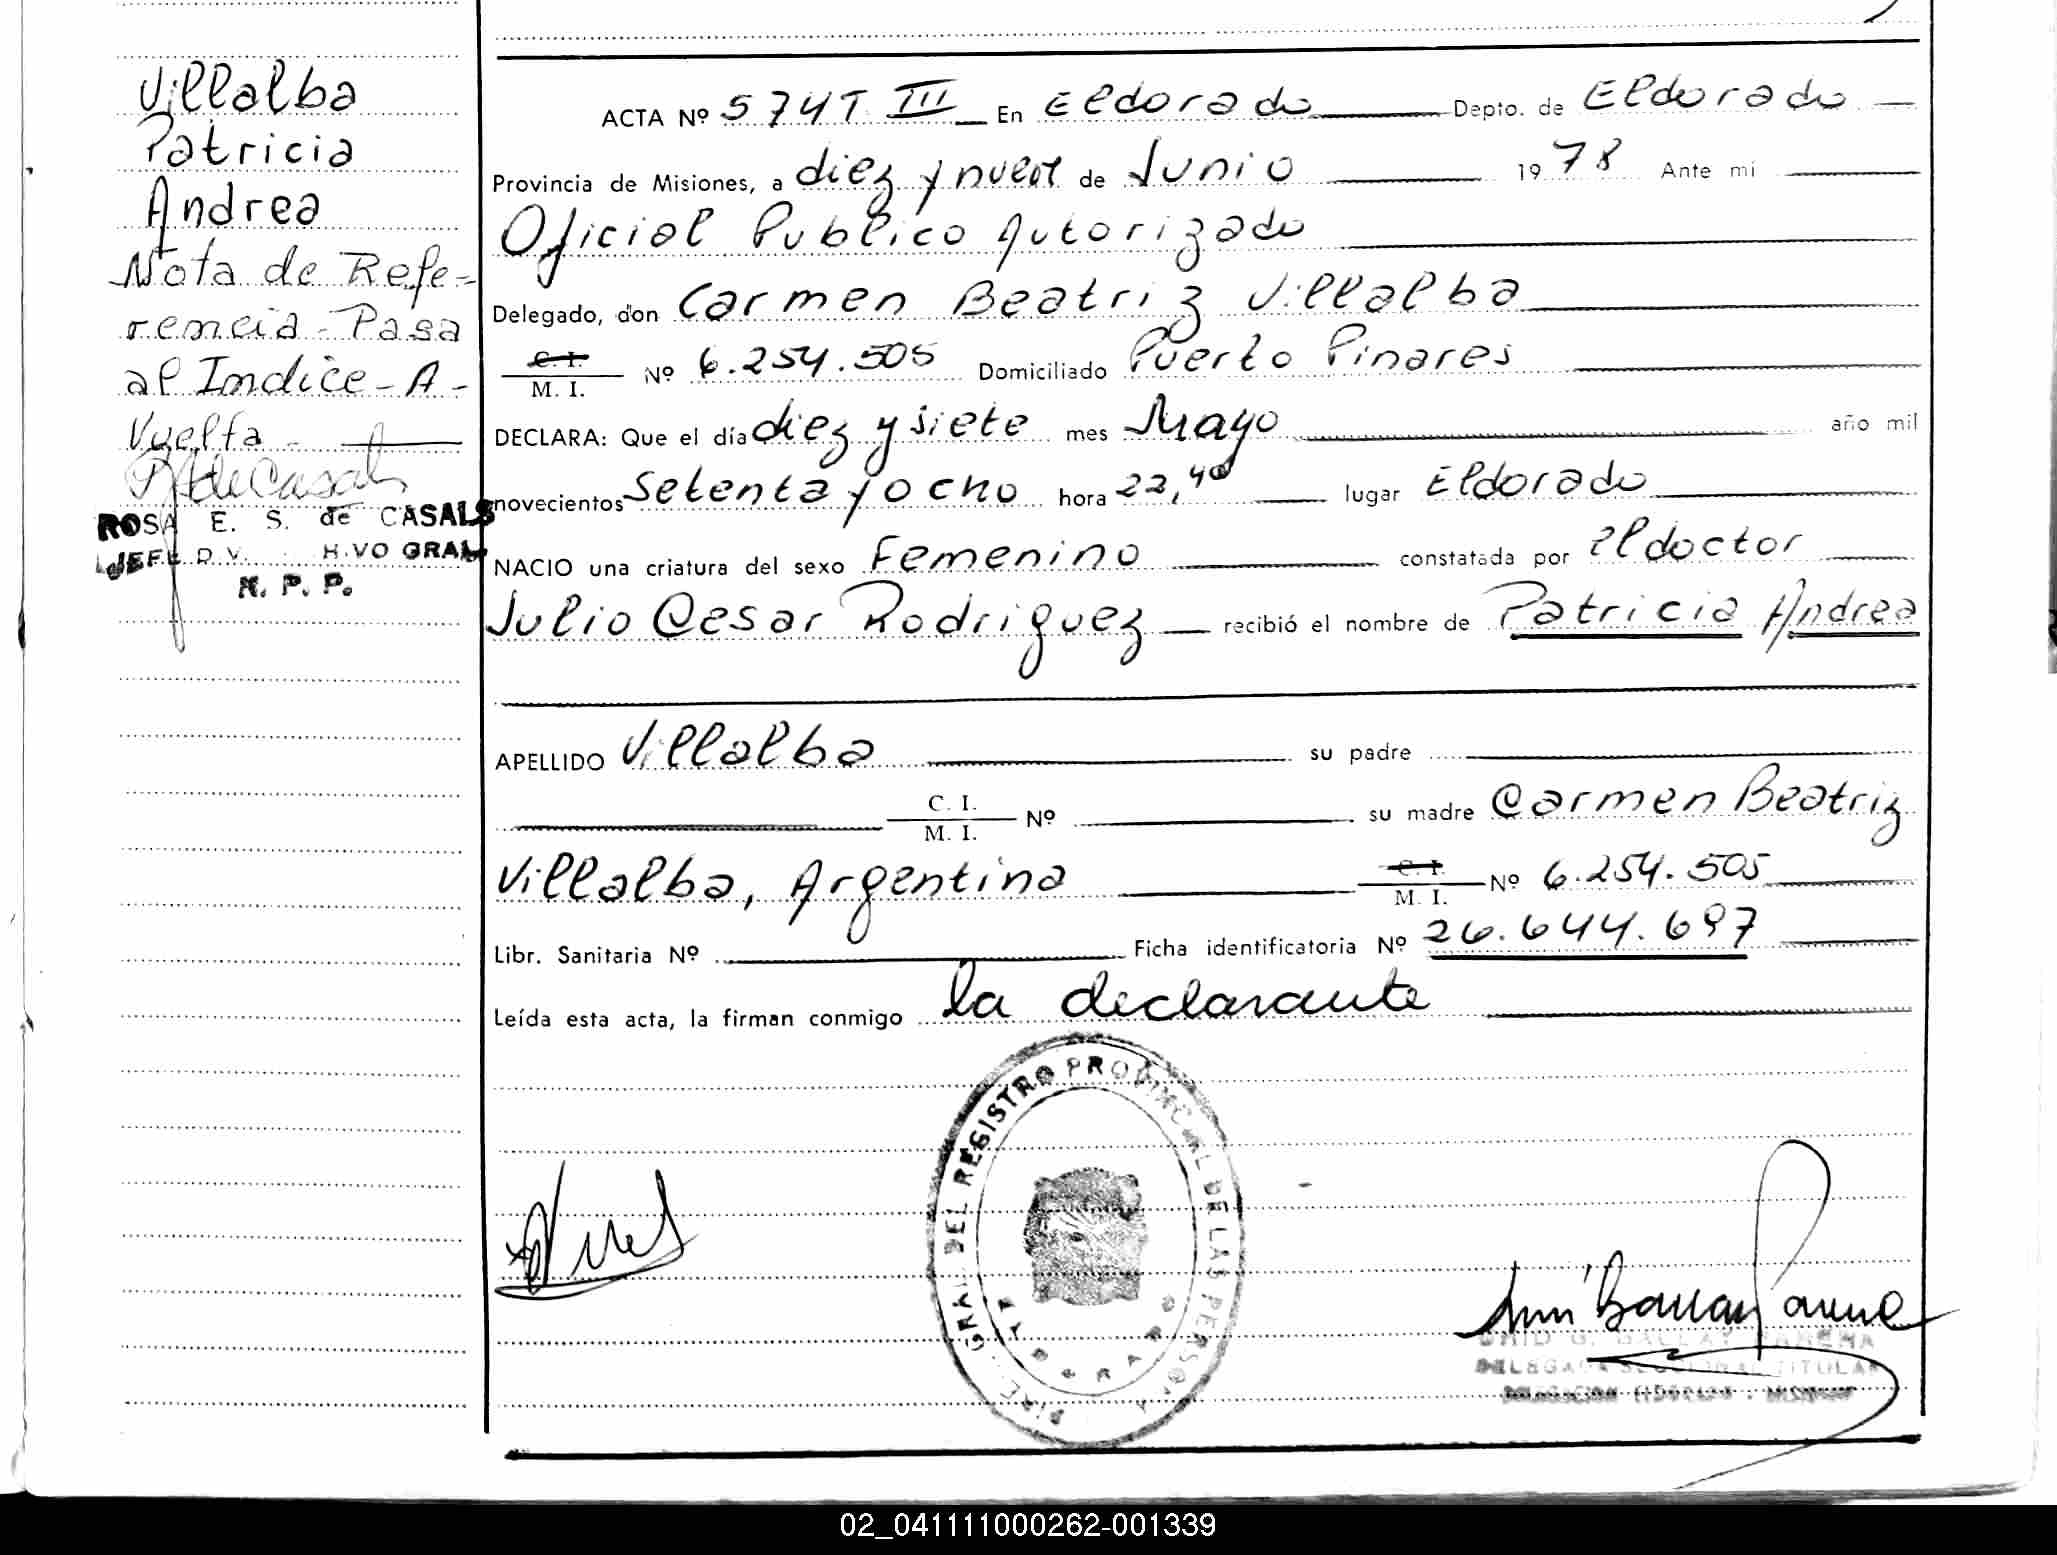 Villalba
Patricia
Andrea
Nota de Refe-
rencia - Pasa
al Indice - A -
Vuelta -
ROSA E. S. de CASALS
JEFE D V. H.VO GRAL
R. P. P.
ACTA Nº 574 T III En Eldorado Depto. de Eldorado
Provincia de Misiones, a diez y nueve de Junio 1978 Ante mi
Oficial Publico Autorizado
Delegado, don Carmen Beatriz Villalba
C. I.
M. I. Nº 6.254.505 Domiciliado Puerto Pinares
DECLARA: Que el día diez y siete mes Mayo año mil
novecientos Setenta y ocho hora 22,40 lugar Eldorado
NACIO una criatura del sexo Femenino constatada por el doctor
Julio Cesar Rodriguez recibió el nombre de Patricia Andrea
APELLIDO Villalba su padre
C. I.
M. I. Nº su madre Carmen Beatriz
Villalba, Argentina C. I.
M. I. Nº 6.254.505
Libr. Sanitaria Nº Ficha identificatoria Nº 26.644.697
Leída esta acta, la firman conmigo la declarante
GRAL DEL REGISTRO PROVINCIAL DE LAS PERSONAS
DELEGADA SECCIONAL TITULAR
02_041111000262-001339